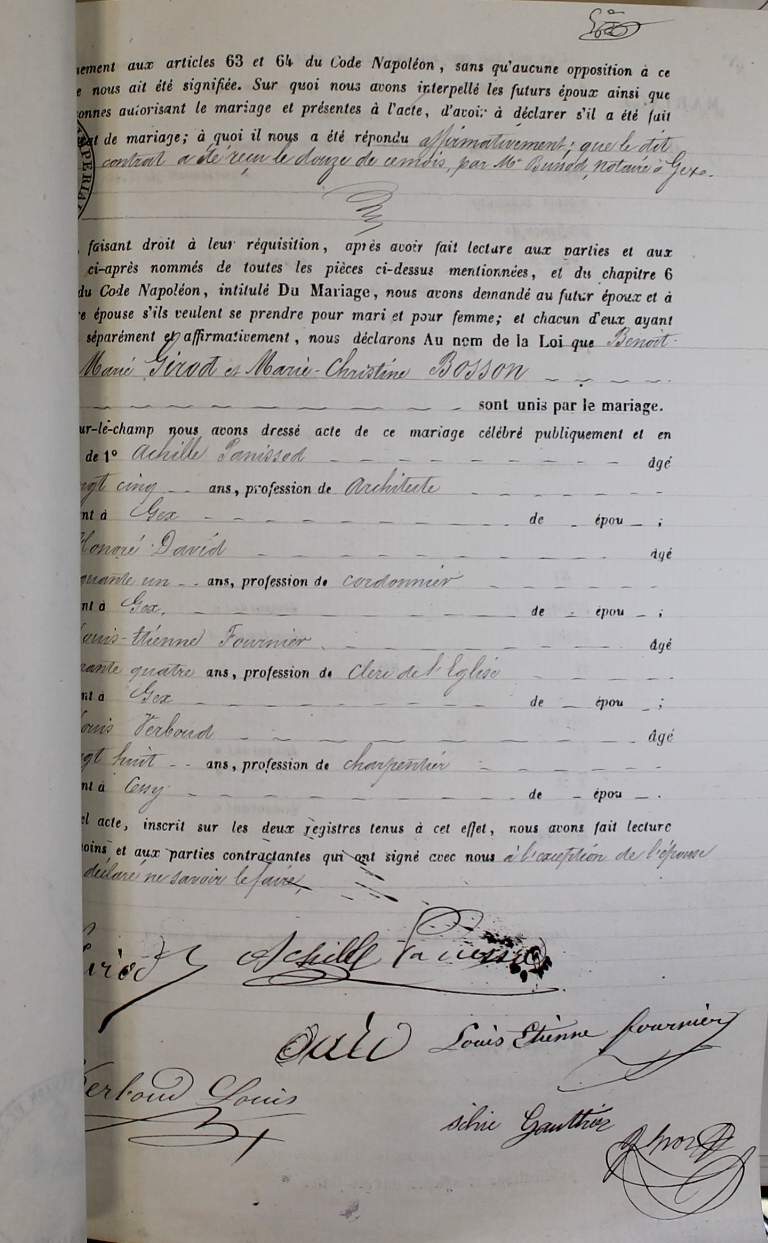 nement aux articles 63 et 64 du Code Napoléon, sans qu'aucune opposition à ce
e nous ait été signifiée. Sur quoi nous avons interpellé les futurs époux ainsi que
onnes autorisant le mariage et présentes à l'acte, d'avoir à déclarer s'il a été fait
at de mariage; à quoi il nous a été répondu affirmativement; que le dit
contrat a été reçu le douze de ce mois, par Me notaire à Gex.
PERIAL
, faisant droit à leur réquisition, après avoir fait lecture aux parties et aux
ci-après nommés de toutes les pièces ci-dessus mentionnées, et du chapitre 6
du Code Napoléon, intitulé Du Mariage, nous avons demandé au futur époux et à
e épouse s'ils veulent se prendre pour mari et pour femme; et chacun d'eux ayant
séparément et affirmativement, nous déclarons Au nom de la Loi que Benoit-
Marie Girod et Marie-Christine BOSSON
sont unis par le mariage.
ur-le-champ nous avons dressé acte de ce mariage célébré publiquement et en
de 1° Achille Panissod âgé
ngt cinq ans, profession de Architecte
nt à Gex de épou ;
Honoré David âgé
quante un ans, profession de cordonnier
nt à Gex. de épou ;
Louis-Etienne Fournier âgé
rante quatre ans, profession de Clerc de l'Eglise
nt à Gex de épou ;
Louis Verboud âgé
ngt huit ans, profession de charpentier
nt à Cessy de épou .
el acte, inscrit sur les deux registres tenus à cet effet, nous avons fait lecture
oins et aux parties contractantes qui ont signé avec nous à l'exception de l'épouse
déclaré ne savoir le faire,
Girod Achille Panissod
David Louis Etienne fournier
Verboud Louis
Gauthier